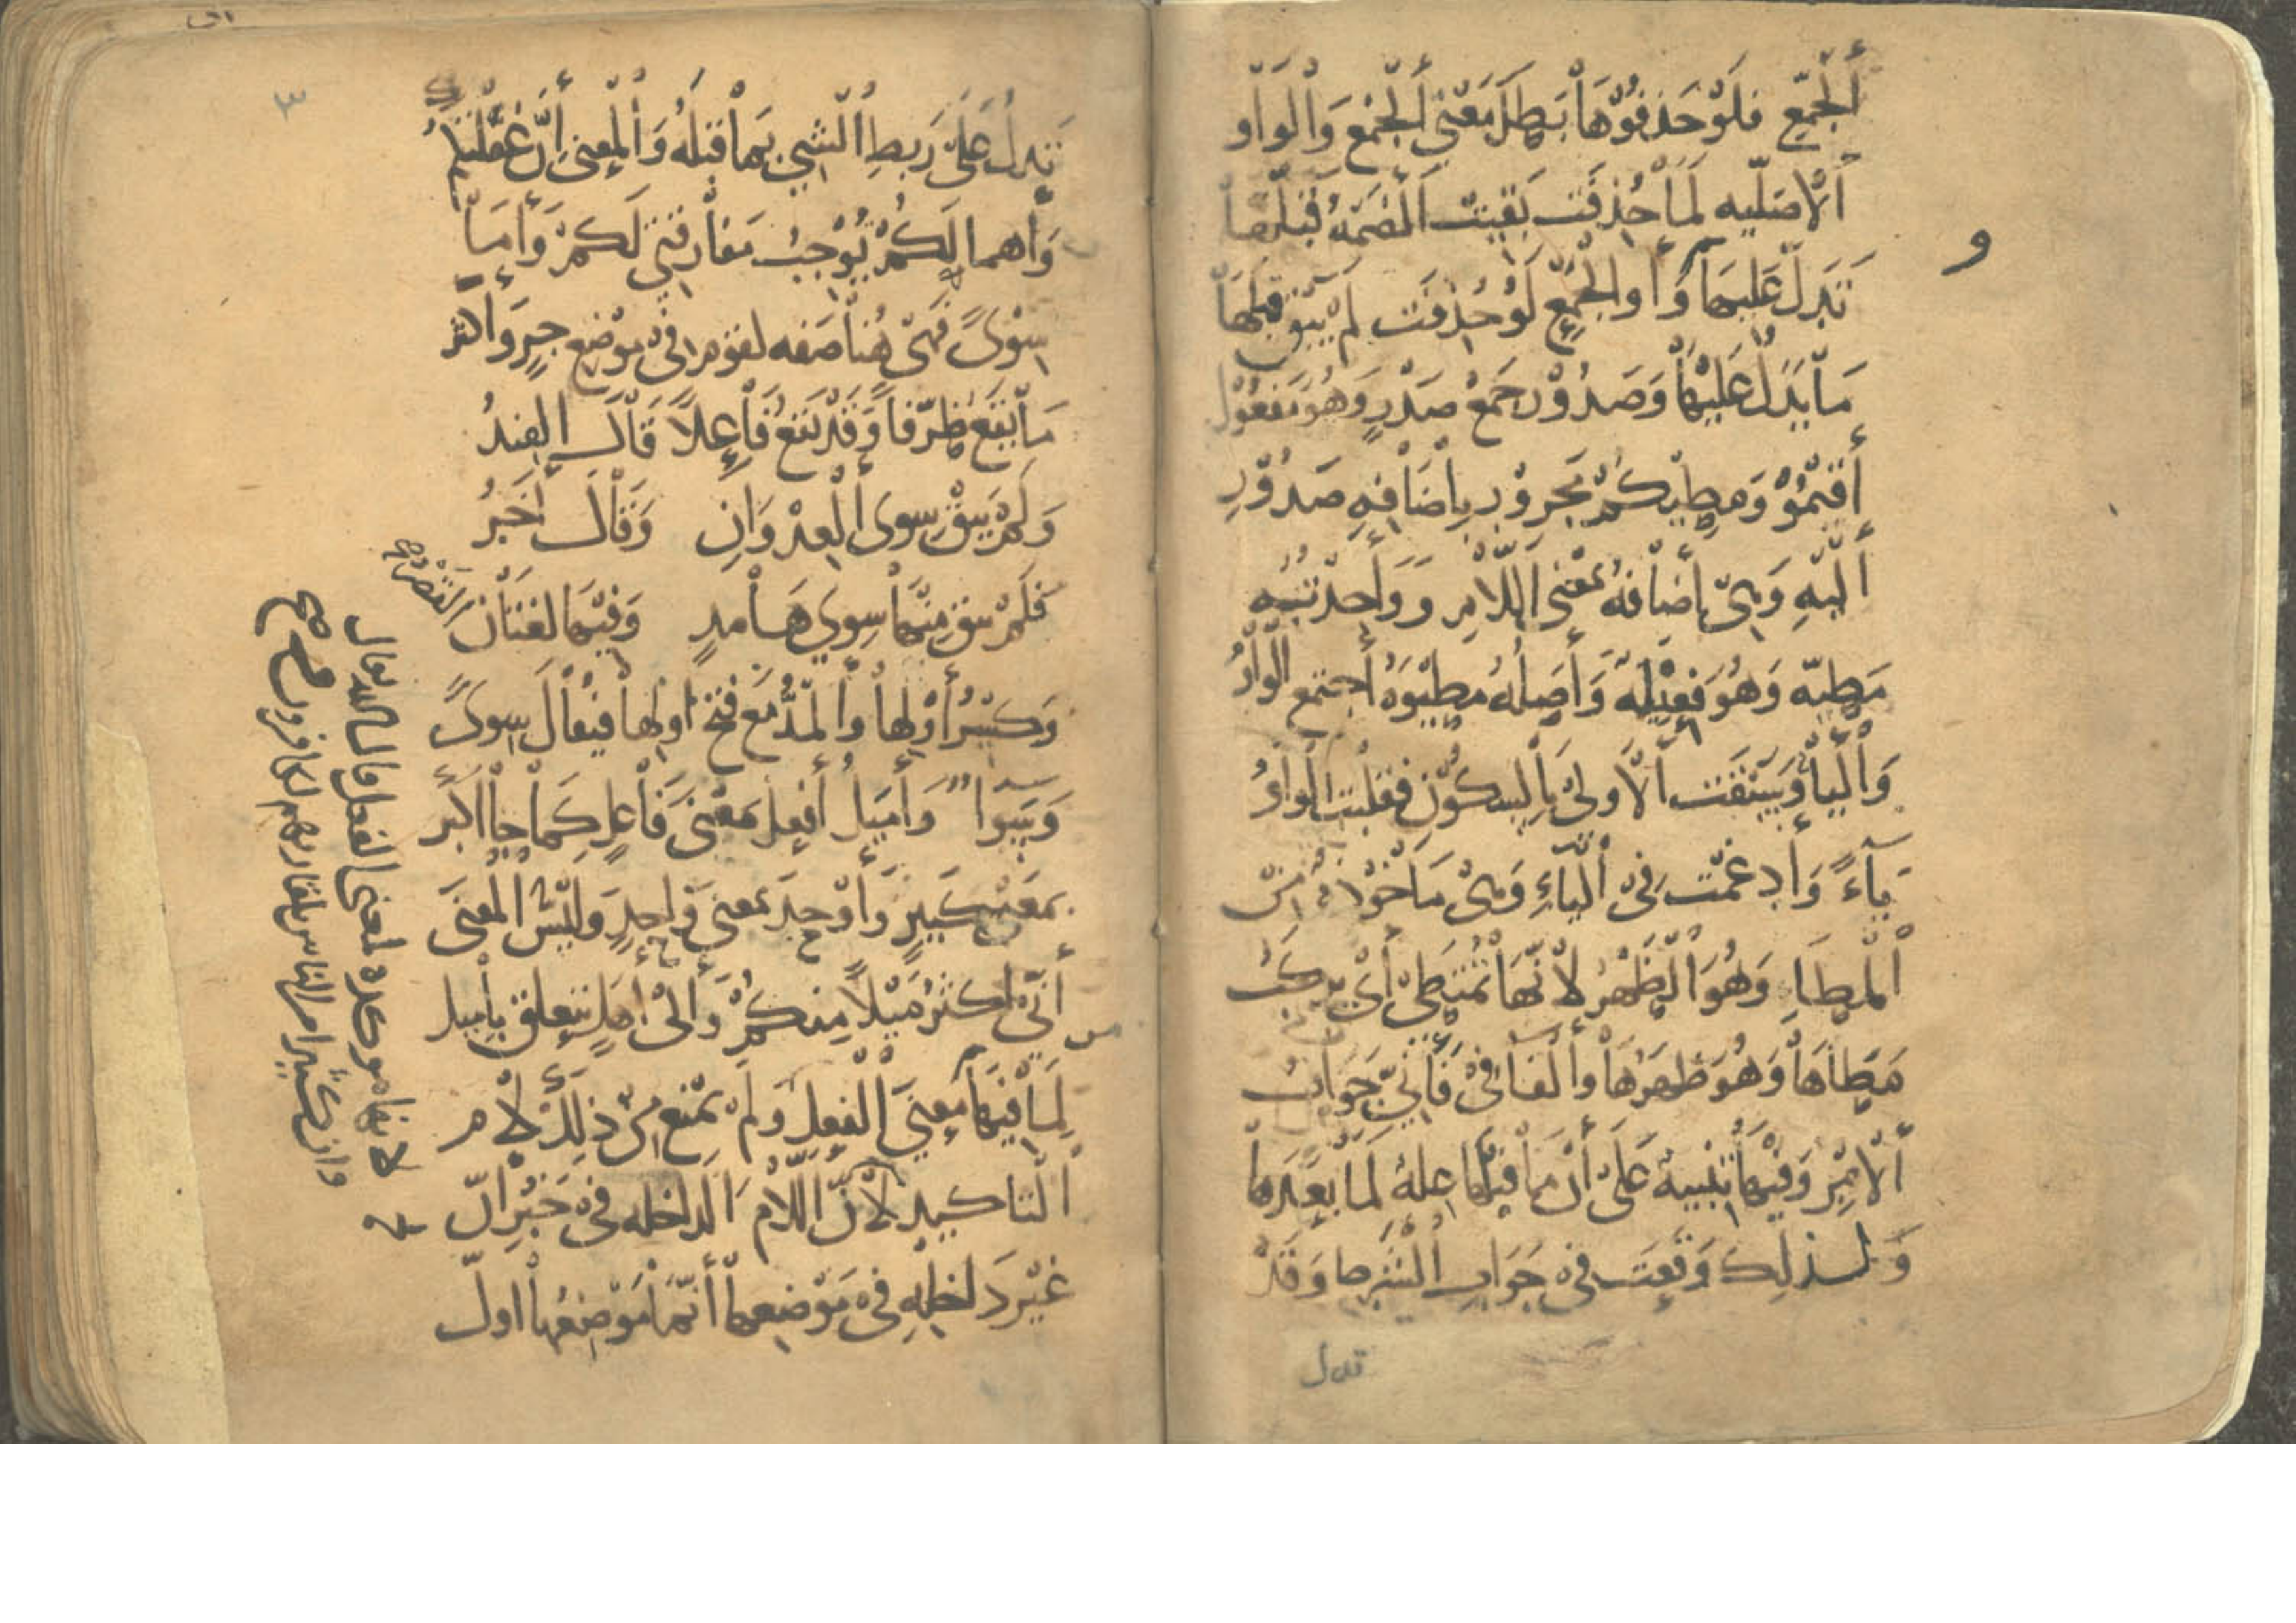 الجمع فلو حذفوها بطل معنى الجمع والواو
الاصليه لما حذفت بقيت الضمه قبلها
تدل عليها وواو الجمع لو حذفت لم يبق قبلها
ما يدل عليها وصدور جمع صدر وهو مفعول
أقيموا ومطيكم مجرور باضافه صدور
اليه وهي إضافه بمعنى اللام وواحد
مطيه وهو فعيله وأصله مطيوه أجتمع الواو
والياء وسبقت الاولى بالسكون فقلبت الواو
ياءً وأدغمت في الياء وهي ماخوذه من
المطا وهو الظهر لانها تمتطى أي يركب
مطاها وهو ظهرها والفا في فاني جواب
الامر وفيها تنبيه على أن ما قبلها علة لما بعدها
ولذلك وقعت في جواب الشرط وقد
تدل
٣
تدل على ربط الشي بما قبله والمعنى إن غفلتكم
وأهمالكم توجب مفارقتي لكم وأما
سوى فهي هنا صفه لقوم في موضع جر واكثر
ما يقع ظرفا وقد يقع فاعلا قال الفند
ولم يبق سوى العدوان وقال أخر
فلم يبق منها سوى هامد وفيها لغتان القصر
وكسر أولها والمد مع فتح أولها فيقال سوى
وسوا وأميل أفعل بمعنى فاعل كما جا اكبر
بمعنى كبير وأوحد بمعنى واحد وليس المعنى
أني اكثر ميلا منكم والى أميل تتعلق بأميل
لما فيها من معنى الفعل ولم يمنع من ذلك لام
التاكيد لأن اللام الداخله في خبر ان
غير داخله في موضعها أنما موضعها اول
لانها موكده لمعنى الفعل قال الله تعالى
وان كثيرا من الناس بلقاء ربهم لكافرون صح